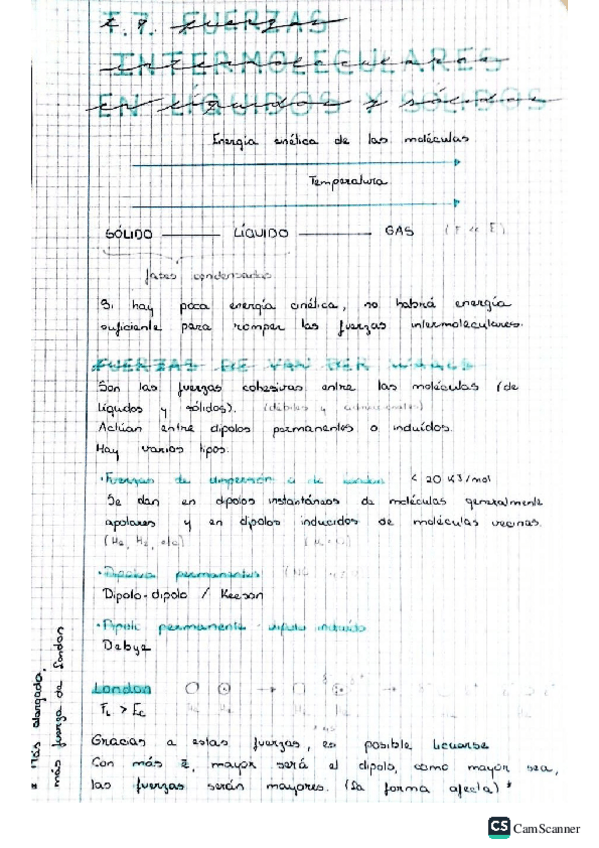 T.7. FUERZAS
INTERMOLECULARES
EN LÍQUIDOS Y SÓLIDOS
Energía cinética de las moléculas
Temperatura
SÓLIDO LÍQUIDO GAS
fases condensadas
Si hay poca energía cinética, no habrá energía
suficiente para romper las fuerzas intermoleculares.
FUERZAS DE VAN DER WAALS
Son las fuerzas cohesivas entre las moléculas (de
líquidos y sólidos). (débiles y
Actúan entre dipolos permanentes o inducidos.
Hay varios tipos:
· Fuerzas de dispersión o de London < 20 KJ/mol
Se dan en dipolos instantáneos de moléculas generalmente
apolares y en dipolos inducidos de moléculas vecinas.
· Dipolos permanentes
Dipolo-dipolo / Keeson
· Dipolo permanente - dipolo inducido
Debye
London
FL > Ec
Gracias a estas fuerzas, es posible licuarse
Con más z, mayor será el dipolo, como mayor sea,
las fuerzas serán mayores. (la forma afecta) *
* Más alargada,
más fuerza de London
CS CamScanner